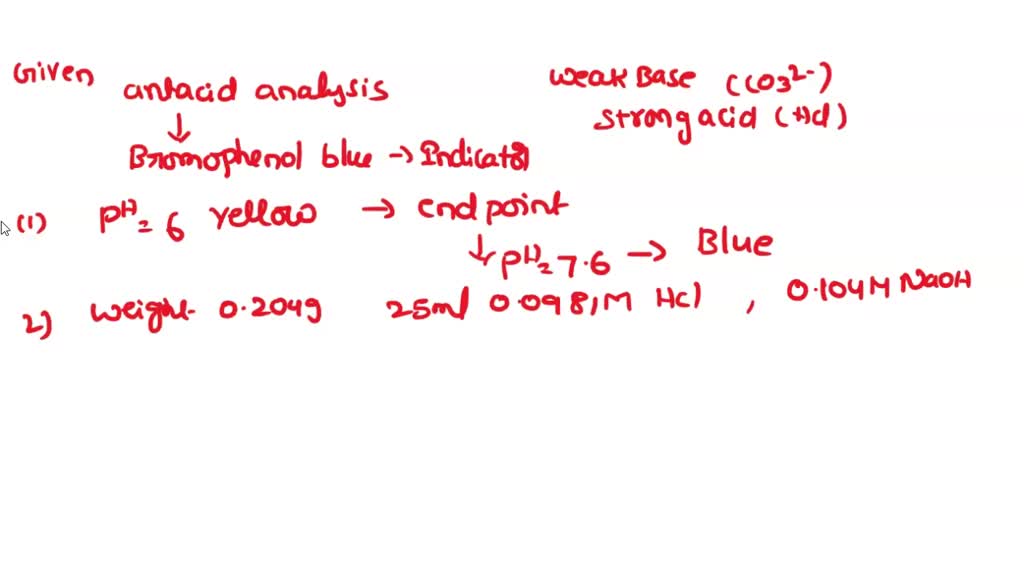 Given
antacid analysis
Weak Base (CO3²⁻)
strong acid (HCl)
↓
Bromophenol blue → Indicator
(1) pH = 6 yellow → end point
↓ pH = 7.6 → Blue
2) weight - 0.204g 25ml 0.0981M HCl , 0.104M NaOH